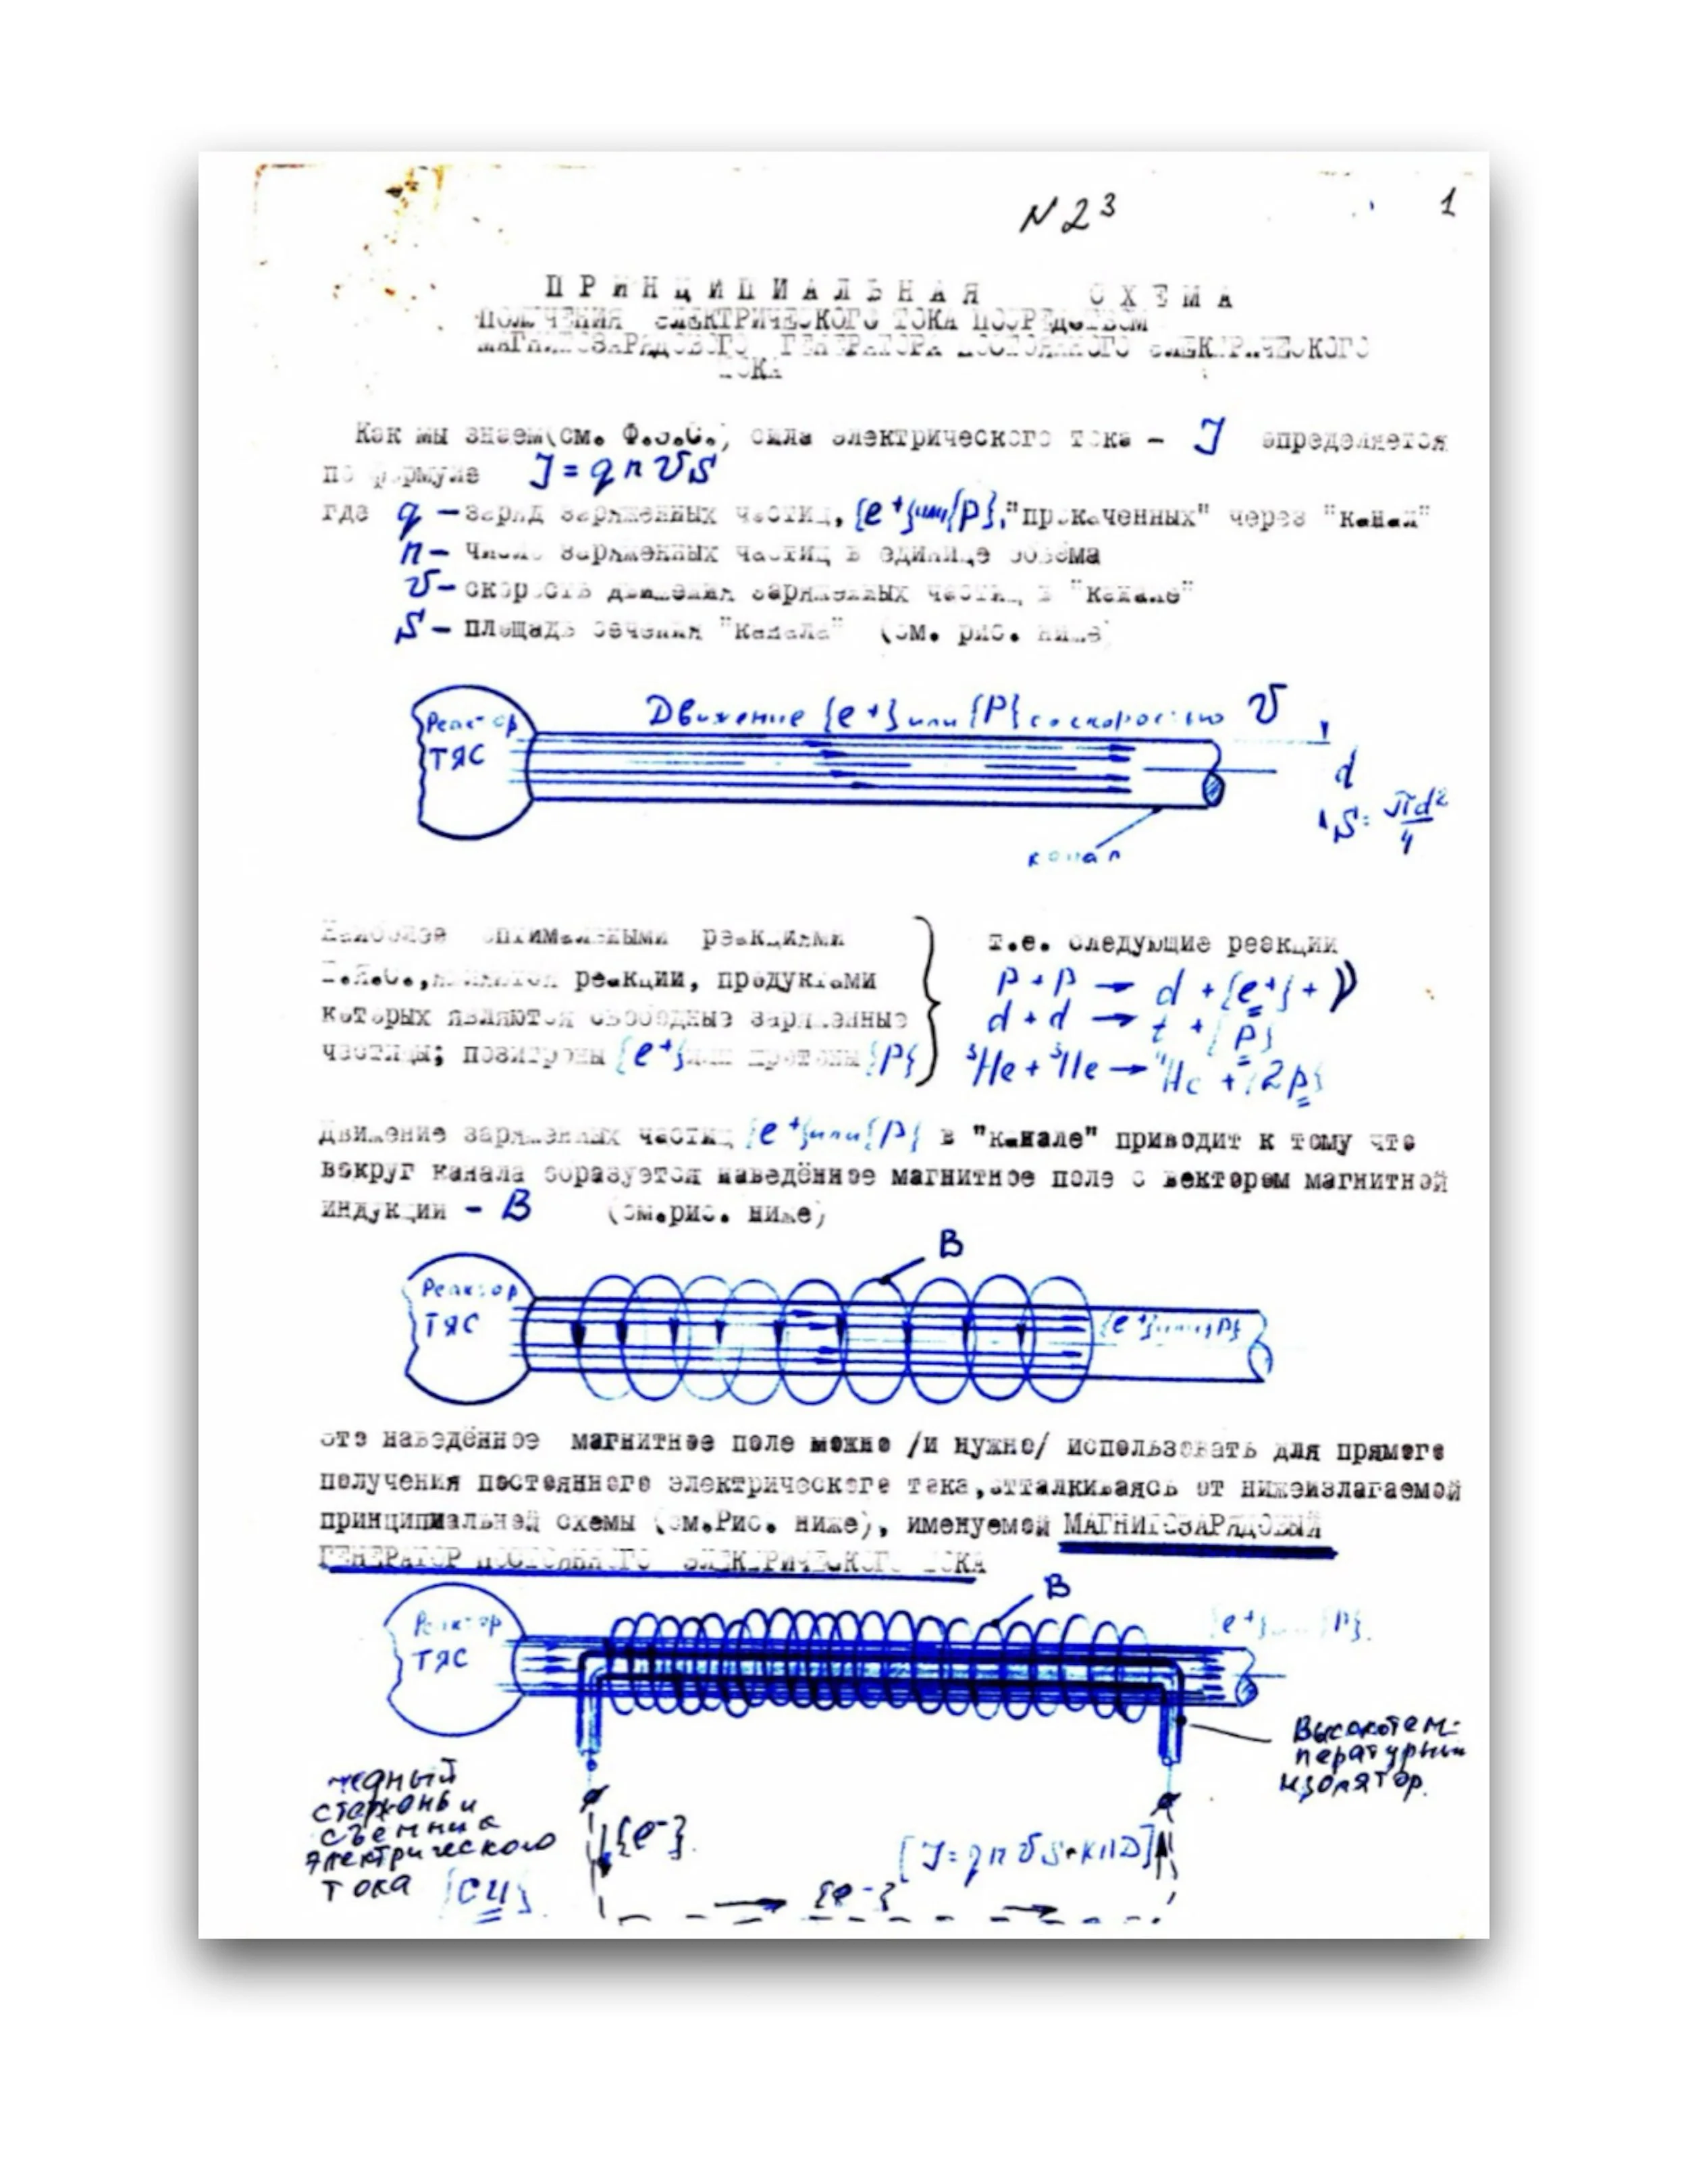 N 2 3
1
ПРИНЦИПИАЛЬНАЯ СХЕМА
ПОЛУЧЕНИЯ ЭЛЕКТРИЧЕСКОГО ТОКА ПОСРЕДСТВОМ
МАГНИТОЗАРЯДОВОГО ГЕНЕРАТОРА ПОСТОЯННОГО ЭЛЕКТРИЧЕСКОГО
ТОКА
Как мы знаем(см. Ф.Э.С.) сила электрического тока - J определяется
по формуле J = q n v S
где q - заряд заряженных частиц, {e+} или {p}, "прокаченных" через "канал"
n - число заряженных частиц в единице объёма
v - скорость движения заряженных частиц в "канале"
S - площадь сечения "канала" (см. рис. ниже)
Движение {e+} или {p} со скоростью v
Реактор
ТЯС
d
S = πd²/4
канал
Наиболее оптимальными реакциями
Т.Я.С., являются реакции, продуктами
которых являются свободные заряженные
частицы; позитроны {e+} или протоны {p}
т.е. следующие реакции
p + p → d + {e+} + ν
d + d → t + {p}
³He + ³He → ⁴He + {2p}
Движение заряженных частиц {e+} или {p} в "канале" приводит к тому что
вокруг канала образуется наведённое магнитное поле с вектором магнитной
индукции - B (см.рис. ниже)
B
Реактор
ТЯС
{e+} или {p}
это наведённое магнитное поле можно /и нужно/ использовать для прямого
получения постоянного электрического тока,отталкиваясь от нижеизлагаемой
принципиальной схемы (см.Рис. ниже), именуемой МАГНИТОЗАРЯДОВЫЙ
ГЕНЕРАТОР ПОСТОЯННОГО ЭЛЕКТРИЧЕСКОГО ТОКА
B
Реактор
ТЯС
{e+} или {p}.
Высокотем-
пературный
изолятор.
медный
стержень и
съемник
электрического
тока {СЧ}
{e-}.
[J = q n v S · КПД]
{e-}